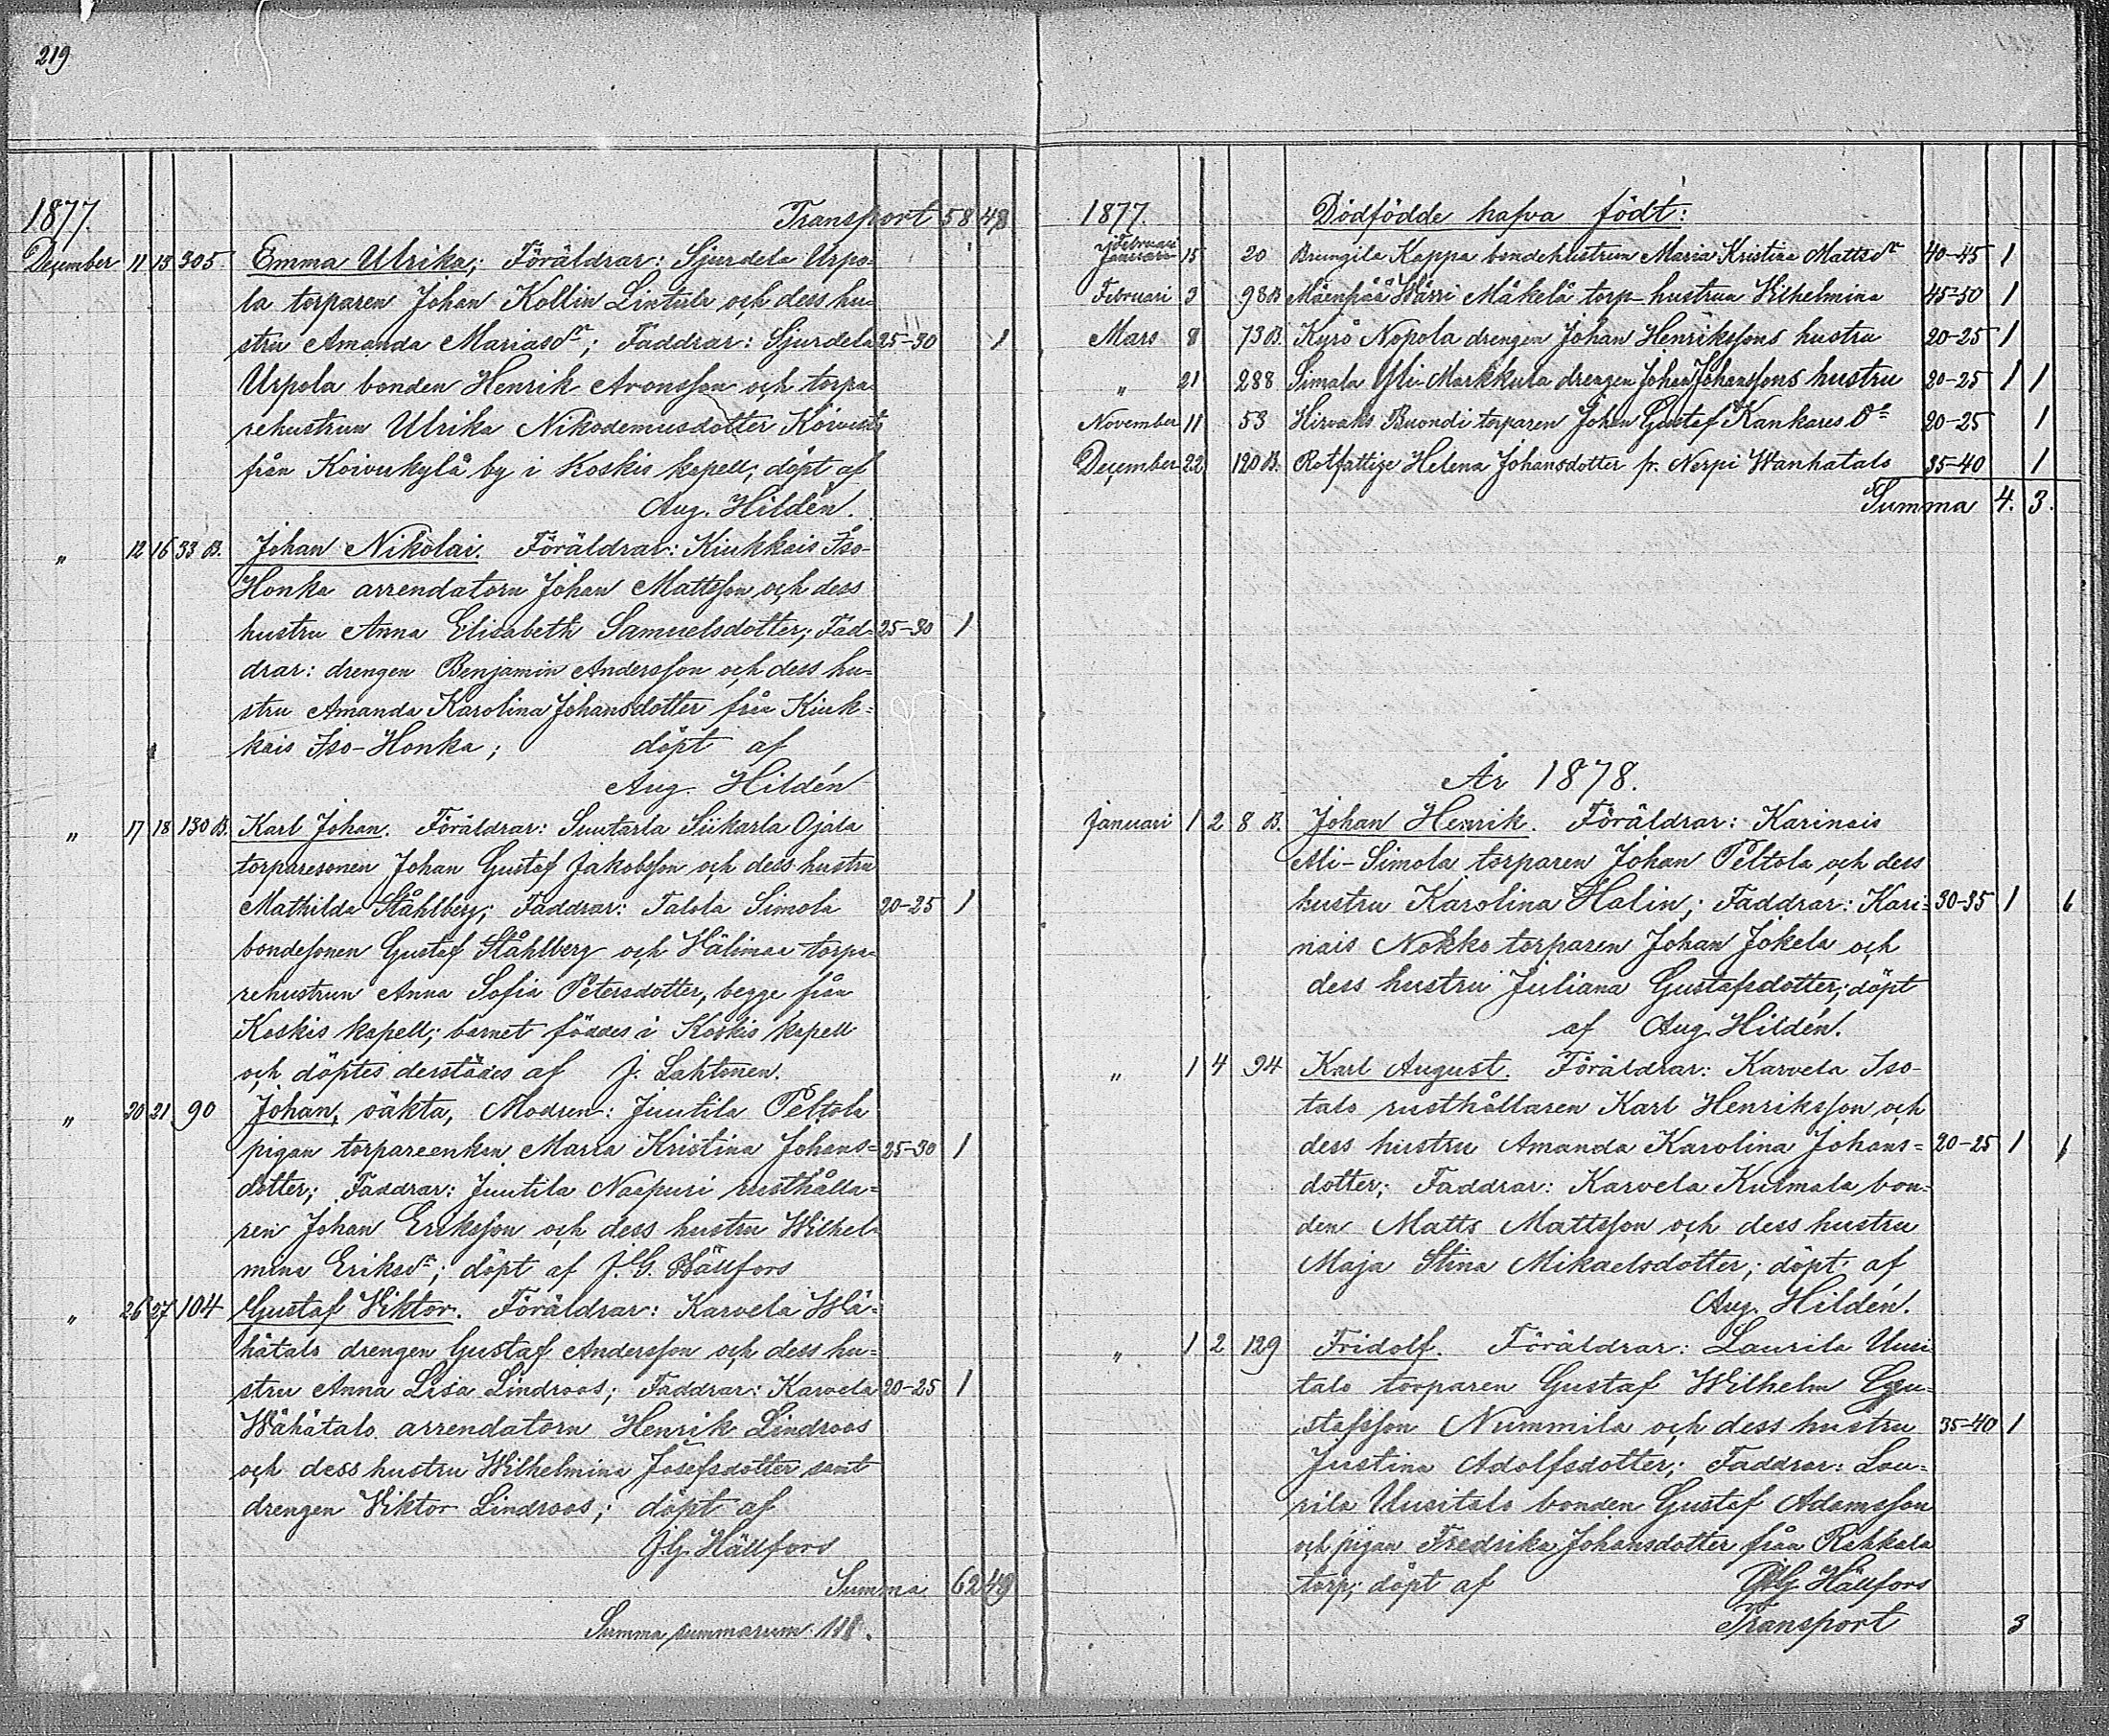 219
1877. Transport 58 48
December 11 13 305. Emma Ulrika; Föräldrar: Sjurdela Urpo-
la torparen Johan Kollin Lintula och dess hu-
stru Amanda Mariasdr; Faddrar: Sjurdela 25-30 1
Urpola bonden Henrik Aronsson och torpa-
rehustrun Ulrika Nikodemusdotter Koivisto
från Koivukylä by i Koskis kapell; döpt af
Aug. Hildén.
" 12 16 33 B. Johan Nikolai. Föräldrar: Kiukkais Iso-
Honka arrendatorn Johan Mattsson och dess
hustru Anna Elisabeth Samuelsdotter; Fad- 25-30 1
drar: drengen Benjamin Andersson och dess hu-
stru Amanda Karolina Johansdotter från Kiuk-
kais Iso-Honka; döpt af
Aug. Hildén
" 17 18 130 B. Karl Johan. Föräldrar: Suutarla Siikarla Ojala
torparesonen Johan Gustaf Jakobsson och dess hustru
Mathilda Ståhlberg; Faddrar: Talola Simola 20-25 1
bondesonen Gustaf Ståhlberg och Hälimaa torpa-
rehustrun Anna Sofia Petersdotter, begge från
Koskis kapell; barnet föddes i Koskis kapell
och döptes derstädes af J. Lahtonen.
" 20 21 90 Johan, oäkta, Modren: Juutila Peltola
pigan torpareenkan Maria Kristina Johans= 25-30 1
dotter; Faddrar: Juutila Naapuri rusthålla=
ren Johan Eriksson och dess hustru Wilhel-
mina Eriksdr; döpt af J. G. Hällfors
" 26 27 104 Gustaf Viktor. Föräldrar: Karvela Wä-
hätalo drengen Gustaf Andersson och dess hu=
stru Anna Lisa Lindroos; Faddrar: Karvela 20-25 1
Wähätalo arrendatorn Henrik Lindroos
och dess hustru Wilhelmina Josefsdotter samt
drengen Viktor Lindroos; döpt af
J.G. Hällfors
Summa 62 49
Summa summarum 111.
1877. Dödfödde hafva födt:
Februari
Januari 15 20 Brungila Kappa bondehustrun Maria Kristina Mattsdr 40-45 1
Februari 3 98 B Mäenpää Wärri Mäkelä torp-hustrun Wilhelmina 45-50 1
Mars 8 73 B. Kyrö Nopola drengen Johan Henrikssons hustru 20-25 1
" 21 288 Simala Yli-Markkula drengen Johan Johanssons hustru 20-25 1 1
November 11 53 Hirvaks Buondi torparen Johan Gustaf Kankares 20-25 1
December 22 120 B. Rotfattige Helena Johansdotter fr. Nerpi Wanhatalo 35-40 1
Summa 4. 3.
År 1878.
Januari 1 2 8 B. Johan Henrik. Föräldrar: Karinais
Ali-Simola torparen Johan Peltola och dess
hustru Karolina Halin; Faddrar: Kari= 30-35 1 6
nais Nokko torparen Johan Jokela och
dess hustru Juliana Gustafsdotter; döpt
af Aug. Hildén.
" 1 4 94 Karl August. Föräldrar: Karvela Iso-
talo rusthållaren Karl Henriksson och
dess hustru Amanda Karolina Johans= 20-25 1 6
dotter; Faddrar: Karvela Kulmala bon-
den Matts Mattsson och dess hustru
Maja Stina Mikaelsdotter; döpt af
Aug. Hildén.
" 1 2 129 Fridolf. Föräldrar: Laurila Uusi
talo torparen Gustaf Wilhelm Gu-
stafsson Nummila och dess hustru 35-40 1
Justina Adolfsdotter; Faddrar: Lau-
rila Uusitalo bonden Gustaf Adamsson
och pigan Fredrika Johansdotter från Rahkala
torp; döpt af J.G. Hällfors
Transport 3